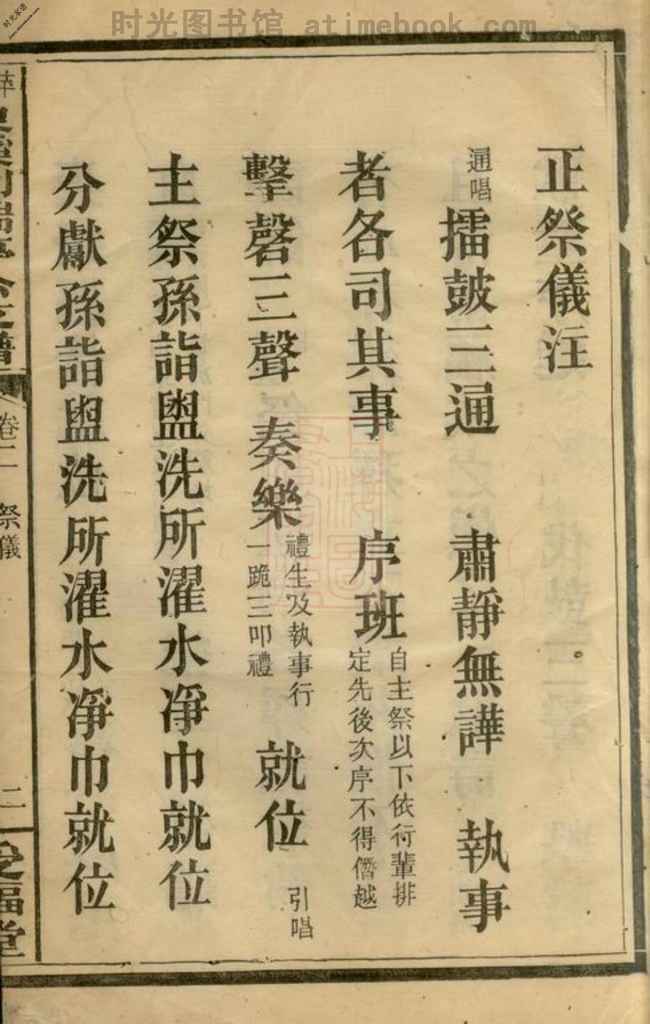 时光图书馆 - www.atimebook.com
时光家谱
正祭儀注
通唱 擂鼓三通 肅靜無譁 執事
者各司其事 序班 自主祭以下依行輩排定先後次序不得僭越
擊磬三聲 奏樂 禮生及執事行一跪三叩禮 就位 引唱
主祭孫詣盥洗所濯水凈巾就位
分獻孫詣盥洗所濯水凈巾就位
譜 卷二 祭儀 二 受福堂